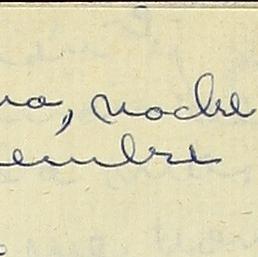 no, noche
iembre